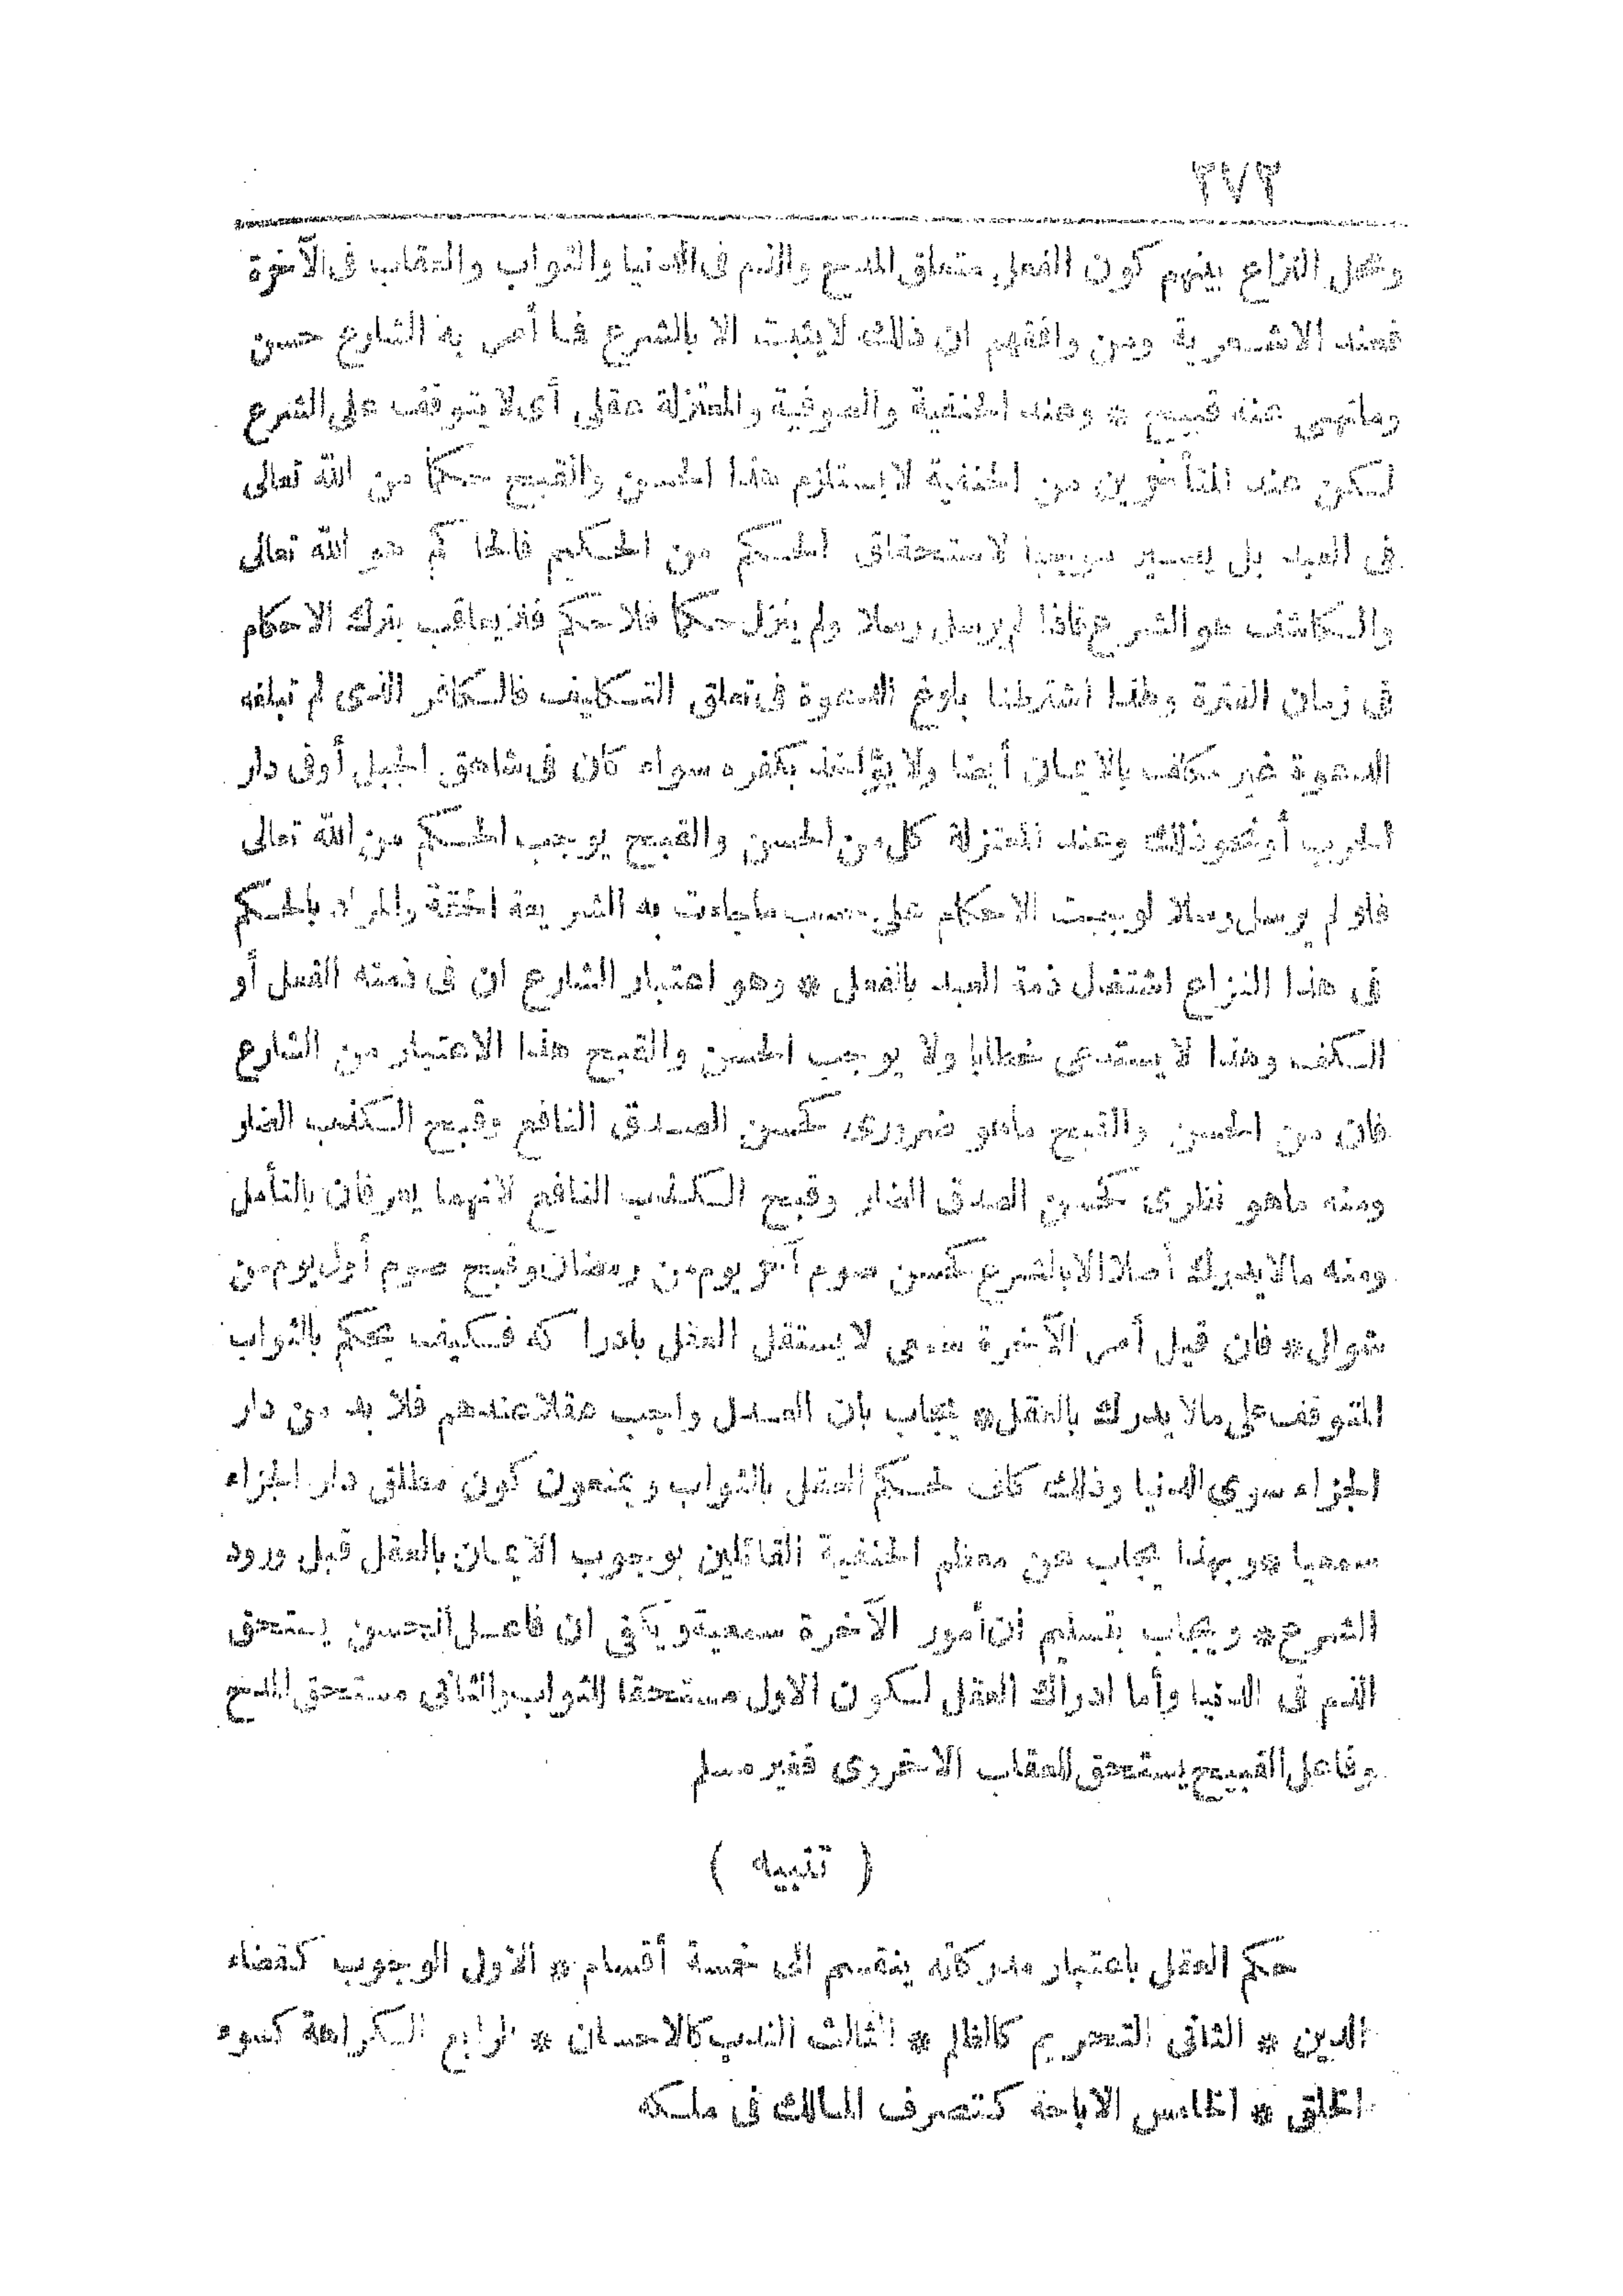 ٢٧٣
ومحل النزاع بينهم كون الفعل متعلق المدح والذم فى الدنيا والثواب والعقاب فى الآخرة
فعند الاشعرية ومن وافقهم ان ذلك لا يثبت الا بالشرع فما أمر به الشارع حسن
وما نهى عنه قبيح * وعند الحنفية والصوفية والمعتزلة عقلى أى لا يتوقف على الشرع
لكن عند المتأخرين من الحنفية لا يستلزم هذا الحسن والقبح حكما من الله تعالى
فى العبد بل يصير موجبا لاستحقاق الحكم من الحكيم فالحاكم هو الله تعالى
والكاشف هو الشرع فاذا لم يرسل رسلا ولم ينزل حكما فلا حكم فلا يعاقب بترك الاحكام
فى زمان الفترة ولهذا اشترطنا بلوغ الدعوة فى تعلق التكليف فالكافر الذى لم تبلغه
الدعوة غير مكلف بالايمان أيضا ولا يؤاخذ بكفره سواء كان فى شاهق الجبل أو فى دار
الحرب أو نحو ذلك وعند المعتزلة كل من الحسن والقبح يوجب الحكم من الله تعالى
فلو لم يرسل رسلا لوجبت الاحكام على حسب ما جاءت به الشريعة الحقة والمراد بالحكم
فى هذا النزاع اشتغال ذمة العبد بالفعل * وهو اعتبار الشارع ان فى ذمته الفعل أو
الكف وهذا لا يستدعى خطابا ولا يوجب الحسن والقبح هذا الاعتبار من الشارع
فان من الحسن والقبح ما هو ضرورى كحسن الصدق النافع وقبح الكذب الضار
ومنه ما هو نظرى كحسن الصدق الضار وقبح الكذب النافع لانهما يعرفان بالتأمل
ومنه ما لا يدرك أصلا الا بالشرع كحسن صوم آخر يوم من رمضان وقبح صوم أول يوم من
شوال * فان قيل أمر الآخرة سمعى لا يستقل العقل بادراكه فكيف يحكم بالثواب
المتوقف على ما لا يدرك بالعقل * يجاب بان العدل واجب عقلا عندهم فلا بد من دار
الجزاء سوى الدنيا وذلك كاف لحكم العقل بالثواب ويمنعون كون مطلق دار الجزاء
سمعيا * وبهذا يجاب عن معظم الحنفية القائلين بوجوب الايمان بالعقل قبل ورود
الشرع * ويجاب بتسليم ان أمور الآخرة سمعية ويكفى ان فاعل الحسن يستحق
الذم فى الدنيا وأما ادراك العقل لكون الاول مستحقا للثواب والثانى مستحق المدح
وفاعل القبيح يستحق للعقاب الاخروى فغير مسلم
( تنبيه )
حكم العقل باعتبار مدركاته ينقسم الى خمسة أقسام * الاول الوجوب كقضاء
الدين * الثانى التحريم كالظلم * الثالث الندب كالاحسان * الرابع الكراهة كسوء
الخلق * الخامس الاباحة كتصرف المالك فى ملكه